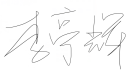 李亭辉